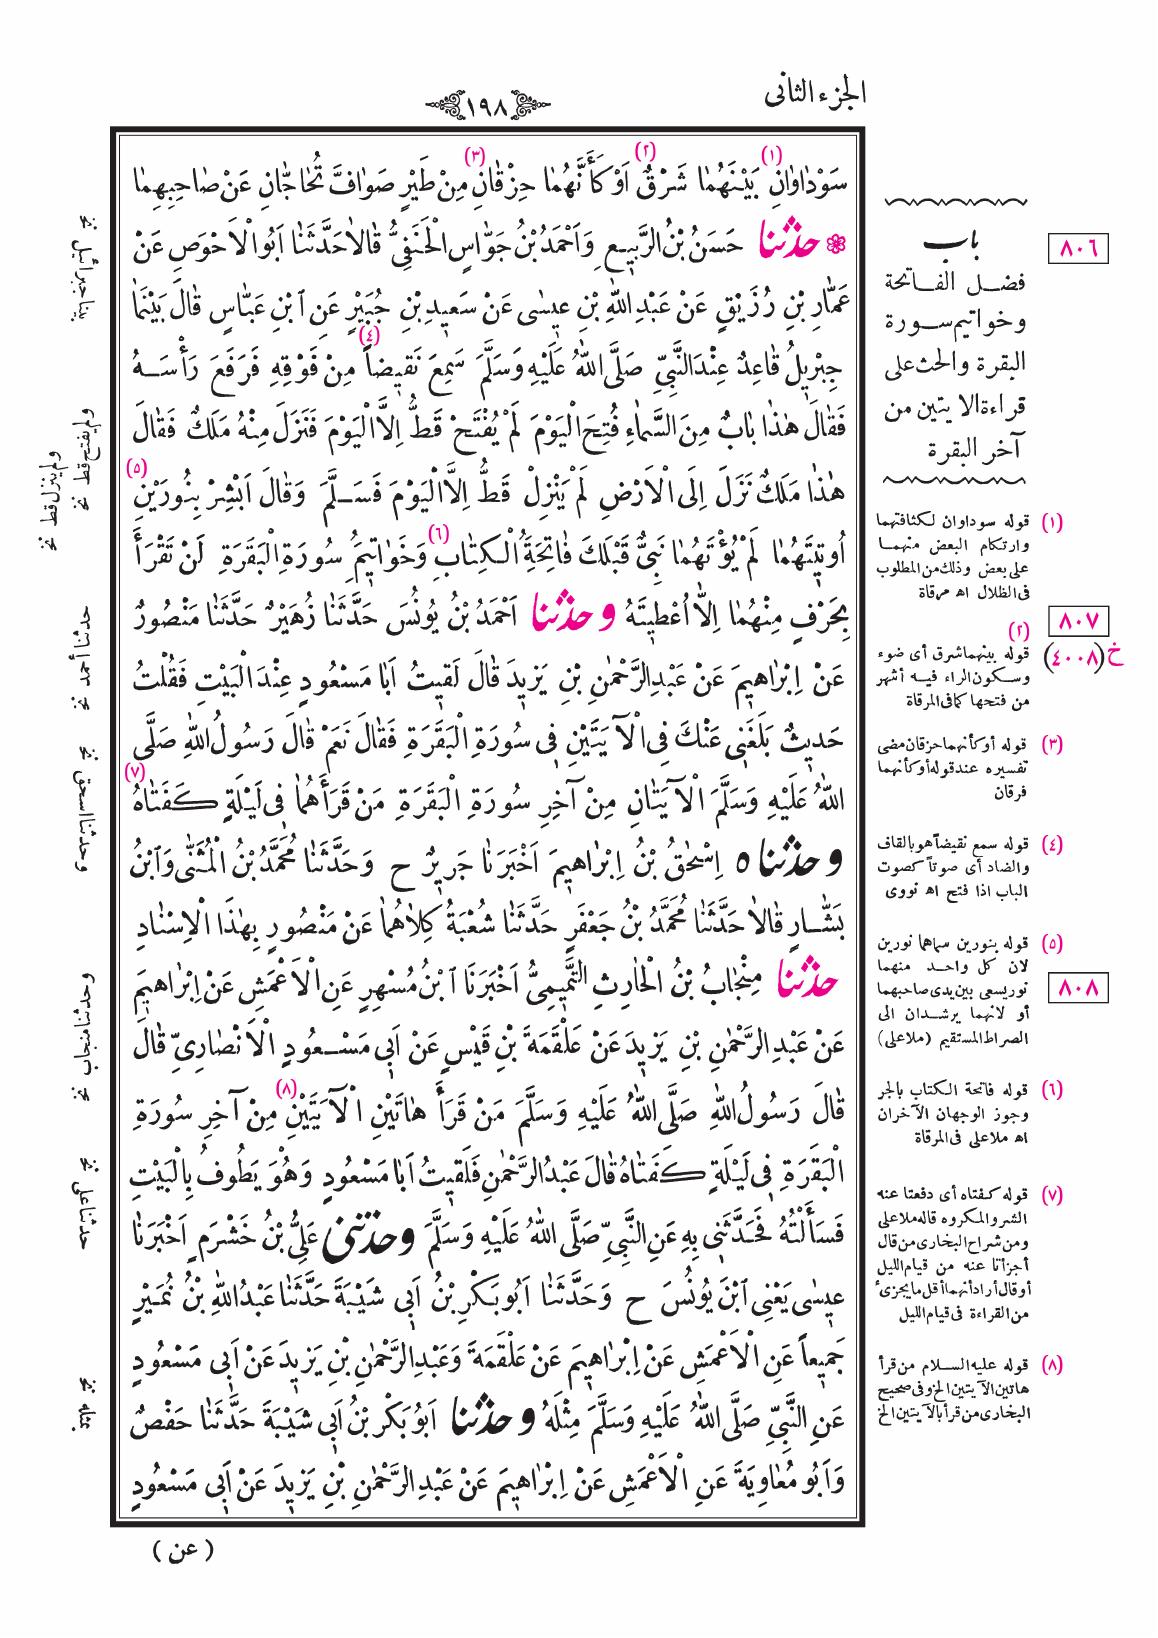 الجزء الثانى
١٩٨
سَوْدَاوَانِ (١) بَيْنَهُمَا شَرْقٌ (٢) اَوْ كَأَنَّهُمَا حِزْقَانِ (٣) مِنْ طَيْرٍ صَوَافَّ تُحَاجَّانِ عَنْ صَاحِبِهِمَا
حَدَّثَنَا حَسَنُ بْنُ الرَّبِيعِ وَاَحْمَدُ بْنُ جَوَّاسٍ الْحَنَفِيُّ قَالَا حَدَّثَنَا اَبُو الْاَحْوَصِ عَنْ
عَمَّارِ بْنِ رُزَيْقٍ عَنْ عَبْدِ اللّٰهِ بْنِ عِيسٰى عَنْ سَعِيدِ بْنِ جُبَيْرٍ عَنِ ابْنِ عَبَّاسٍ قَالَ بَيْنَمَا
جِبْرِيلُ قَاعِدٌ عِنْدَ النَّبِيِّ صَلَّى اللّٰهُ عَلَيْهِ وَسَلَّمَ سَمِعَ نَقِيضاً (٤) مِنْ فَوْقِهِ فَرَفَعَ رَأْسَهُ
فَقَالَ هٰذَا بَابٌ مِنَ السَّمَاءِ فُتِحَ الْيَوْمَ لَمْ يُفْتَحْ قَطُّ اِلَّا الْيَوْمَ فَنَزَلَ مِنْهُ مَلَكٌ فَقَالَ
هٰذَا مَلَكٌ نَزَلَ اِلَى الْاَرْضِ لَمْ يَنْزِلْ قَطُّ اِلَّا الْيَوْمَ فَسَلَّمَ وَقَالَ اَبْشِرْ بِنُورَيْنِ (٥)
اُوتِيتَهُمَا لَمْ يُؤْتَهُمَا نَبِيٌّ قَبْلَكَ فَاتِحَةَُِ الْكِتَابِ (٦) وَخَوَاتِيمَُِ سُورَةِ الْبَقَرَةِ لَنْ تَقْرَأَ
بِحَرْفٍ مِنْهُمَا اِلَّا اُعْطِيتَهُ وحَدَّثَنَا اَحْمَدُ بْنُ يُونُسَ حَدَّثَنَا زُهَيْرٌ حَدَّثَنَا مَنْصُورٌ
عَنْ اِبْرَاهِيمَ عَنْ عَبْدِ الرَّحْمٰنِ بْنِ يَزِيدَ قَالَ لَقِيتُ اَبَا مَسْعُودٍ عِنْدَ الْبَيْتِ فَقُلْتُ
حَدِيثٌ بَلَغَنِى عَنْكَ فِى الْآيَتَيْنِ فِى سُورَةِ الْبَقَرَةِ فَقَالَ نَعَمْ قَالَ رَسُولُ اللّٰهِ صَلَّى
اللّٰهُ عَلَيْهِ وَسَلَّمَ الْآيَتَانِ مِنْ آخِرِ سُورَةِ الْبَقَرَةِ مَنْ قَرَأَهُمَا فِى لَيْلَةٍ كَفَتَاهُ (٧)
وحَدَّثَنَاه اِسْحٰقُ بْنُ اِبْرَاهِيمَ اَخْبَرَنَا جَرِيرٌ ح وَحَدَّثَنَا مُحَمَّدُ بْنُ الْمُثَنّٰى وَابْنُ
بَشَّارٍ قَالَا حَدَّثَنَا مُحَمَّدُ بْنُ جَعْفَرٍ حَدَّثَنَا شُعْبَةُ كِلَاهُمَا عَنْ مَنْصُورٍ بِهٰذَا الْاِسْنَادِ
حَدَّثَنَا مِنْجَابُ بْنُ الْحَارِثِ التَّمِيمِيُّ اَخْبَرَنَا ابْنُ مُسْهِرٍ عَنِ الْاَعْمَشِ عَنْ اِبْرَاهِيمَ
عَنْ عَبْدِ الرَّحْمٰنِ بْنِ يَزِيدَ عَنْ عَلْقَمَةَ بْنِ قَيْسٍ عَنْ اَبِى مَسْعُودٍ الْاَنْصَارِيِّ قَالَ
قَالَ رَسُولُ اللّٰهِ صَلَّى اللّٰهُ عَلَيْهِ وَسَلَّمَ مَنْ قَرَأَ (٨) هَاتَيْنِ الْآيَتَيْنِ مِنْ آخِرِ سُورَةِ
الْبَقَرَةِ فِى لَيْلَةٍ كَفَتَاهُ قَالَ عَبْدُ الرَّحْمٰنِ فَلَقِيتُ اَبَا مَسْعُودٍ وَهْوَ يَطُوفُ بِالْبَيْتِ
فَسَأَلْتُهُ فَحَدَّثَنِى بِهِ عَنِ النَّبِيِّ صَلَّى اللّٰهُ عَلَيْهِ وَسَلَّمَ وحَدَّثَنِى عَلِيُّ بْنُ خَشْرَمٍ اَخْبَرَنَا
عِيسٰى يَعْنِى ابْنَ يُونُسَ ح وَحَدَّثَنَا اَبُو بَكْرِ بْنُ اَبِى شَيْبَةَ حَدَّثَنَا عَبْدُ اللّٰهِ بْنُ نُمَيْرٍ
جَمِيعاً عَنِ الْاَعْمَشِ عَنْ اِبْرَاهِيمَ عَنْ عَلْقَمَةَ وَعَبْدِ الرَّحْمٰنِ بْنِ يَزِيدَ عَنْ اَبِى مَسْعُودٍ
عَنِ النَّبِيِّ صَلَّى اللّٰهُ عَلَيْهِ وَسَلَّمَ مِثْلَهُ وحَدَّثَنَا اَبُو بَكْرِ بْنُ اَبِى شَيْبَةَ حَدَّثَنَا حَفْصٌ
وَاَبُو مُعَاوِيَةَ عَنِ الْاَعْمَشِ عَنْ اِبْرَاهِيمَ عَنْ عَبْدِ الرَّحْمٰنِ بْنِ يَزِيدَ عَنْ اَبِى مَسْعُودٍ
( عن )
٨٠٦
باب
فضل الفاتحة
وخواتيم سورة
البقرة والحث على
قراءة الآيتين من
آخر البقرة
(١) قوله سوداوان لكثافتهما
وارتكام البعض منهما
على بعض وذلك من المطلوب
فى الظلال اه مرقاة
٨٠٧
خ (٤٠٠٨)
(٢)
قوله بينهما شرق أى ضوء
وسكون الراء فيه أشهر
من فتحها كما فى المرقاة
(٣) قوله أو كأنهما حزقان مضى
تفسيره عند قوله أو كأنهما
فرقان
(٤) قوله سمع نقيضاً هو بالقاف
والضاد أى صوتاً كصوت
الباب اذا فتح اه نووى
(٥) قوله بنورين سماهما نورين
لان كل واحد منهما
نور يسعى بين يدى صاحبهما
أو لانهما يرشدان الى
الصراط المستقيم (ملا على)
٨٠٨
(٦) قوله فاتحة الكتاب بالجر
وجوز الوجهان الآخران
اه ملا على فى المرقاة
(٧) قوله كفتاه أى دفعتا عنه
الشر والمكروه قاله ملا على
ومن شراح البخارى من قال
أجزأتا عنه من قيام الليل
أو قال أراد أنهما أقل ما يجزئ
من القراءة فى قيام الليل
(٨) قوله عليه السلام من قرأ
هاتين الآيتين الخ وفى صحيح
البخارى من قرأ بالآيتين الخ
بينا جبرائيل نخ
ولم يفتح قط نخ
ولم ينزل قط نخ
حدثنا أحمد نخ
وحدثنا اسحق نخ
وحدثنا منجاب نخ
حدثنا على نخ
بمثله نخ